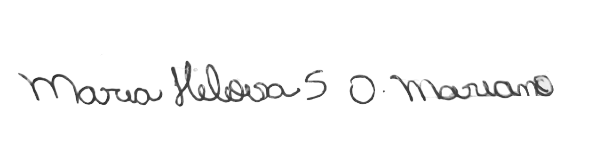 Maria Heloisa S O. Mariano